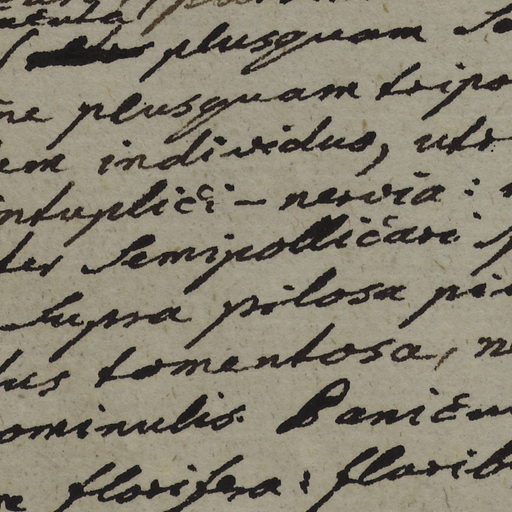 plusquam
ne plusquam tripo
em individuo, utr
ntuplici-nervia:
ter Semipollicari
Supra pilosa pi
lus tomentosa, n
ominulis. Panicu
florifera: florib